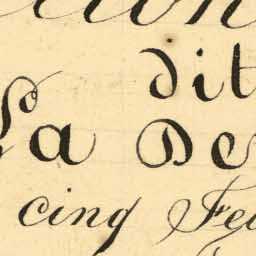 dit
La De
cinq Fe